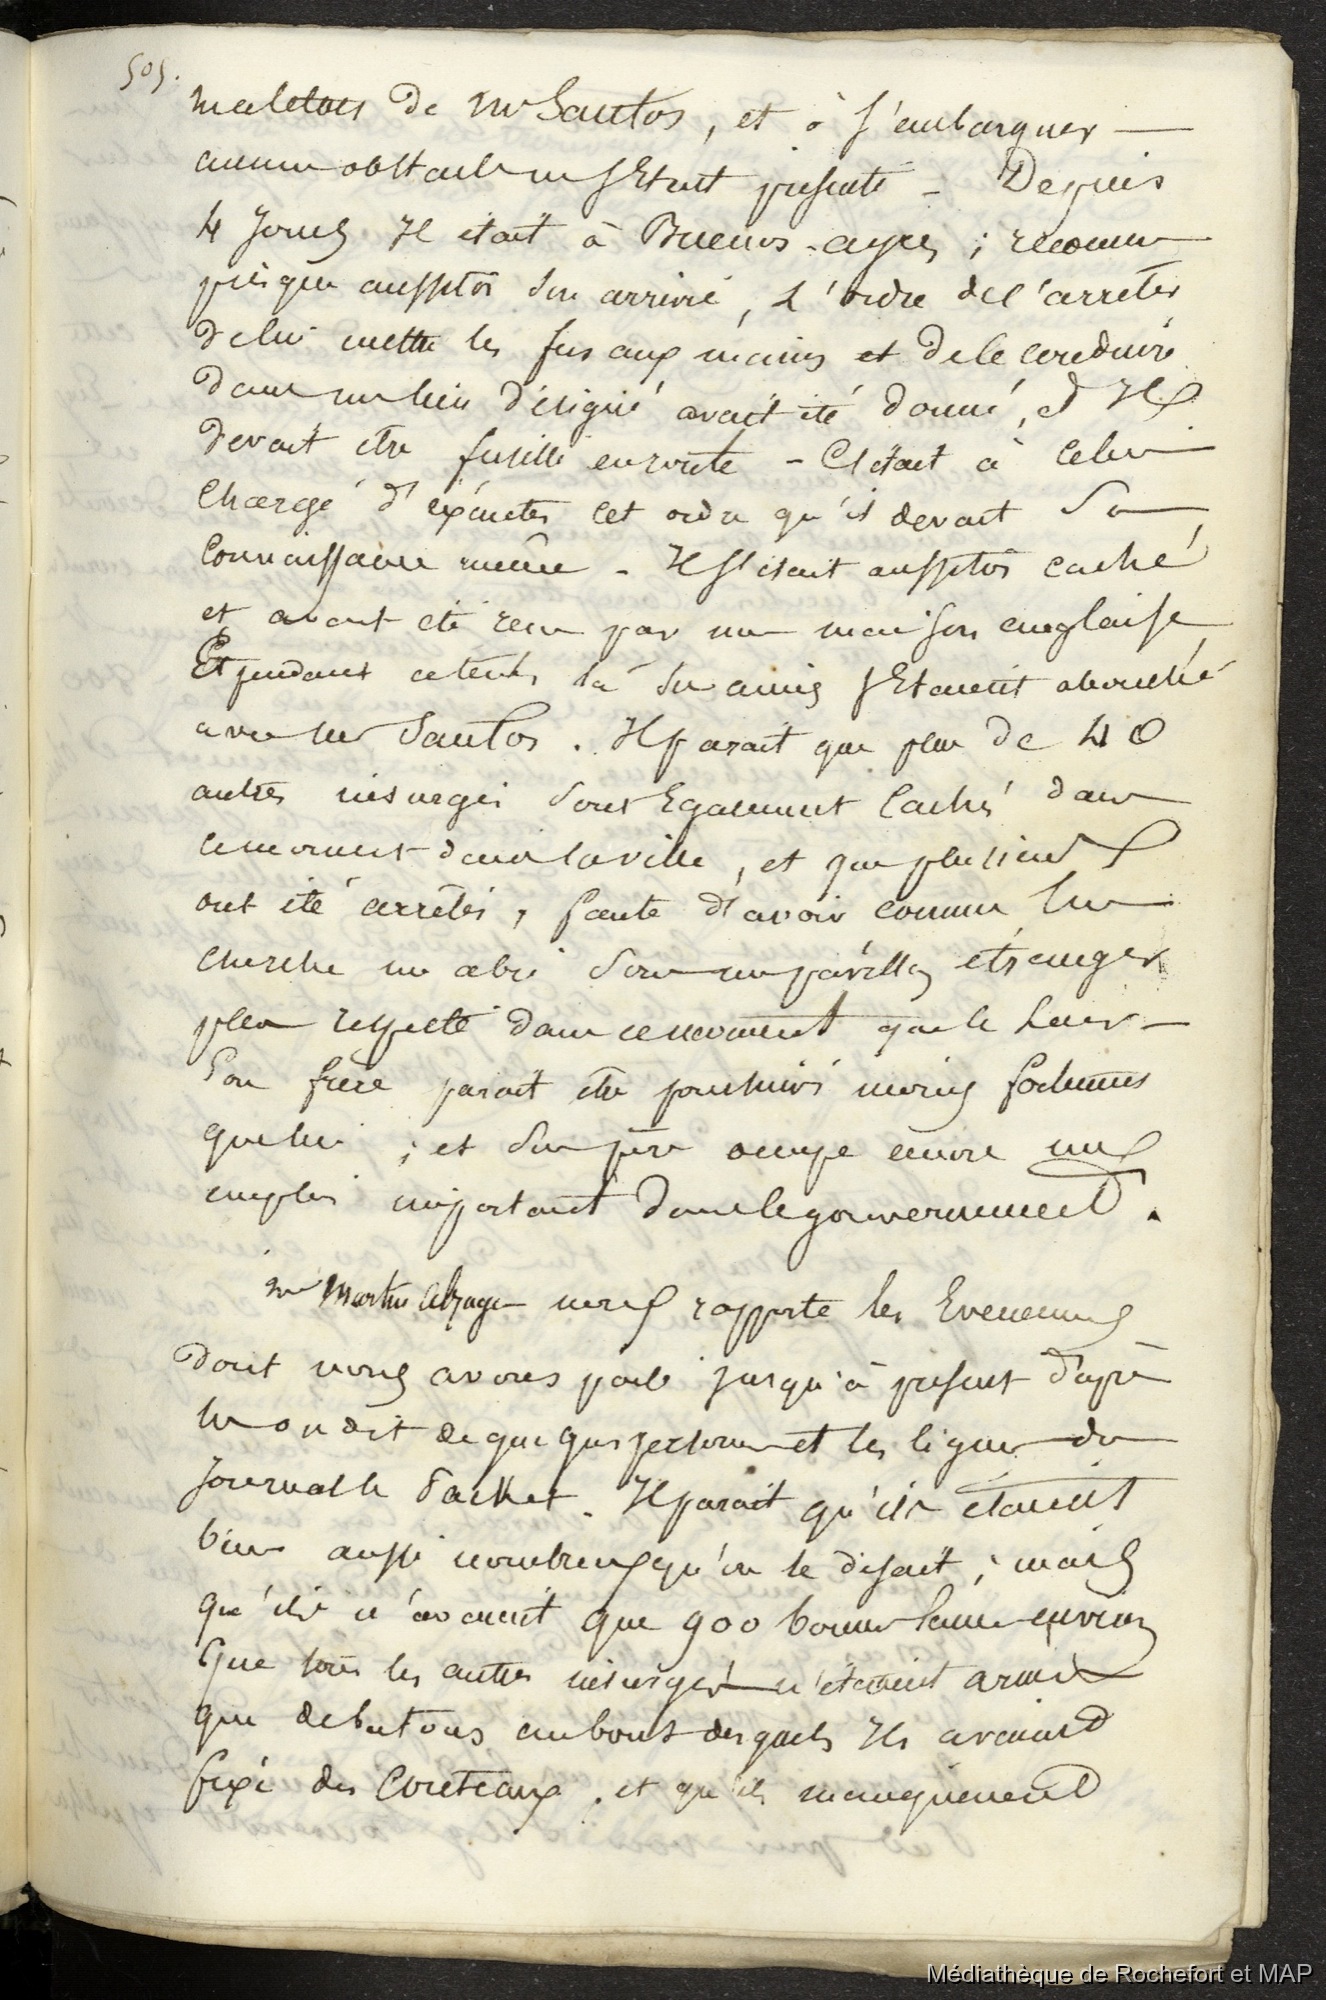 505.
matelots de Mr Santos, et à s'embarquer —
aucun obstacle ne s'Etait présenté - Depuis
4 Jours Il était à Buenos-ayres ; reconnu
presque aussitôt son arrivée, L'ordre de l'arrêter,
de lui mettre les fers aux mains et de le conduire
dans un lieu désigné avait été donné, et Il
devait être fusillé en route - C'était à celui
chargé d'exécuter cet ordre qu'il devait sa
connaissance même - Il s'était aussitôt caché
et avait été reçu par une maison anglaise
Et pendant ce tems là ses amis s'Etaient abouché
avec Mr Santos . Il parait que plus de 40
autres insurgés sont Egalement cachés dans
ce moment dans la ville, et que plusieurs
ont été arrêtés, faute d'avoir comme lui
cherché un abri sous un pavillon étranger
plus respecté dans ce moment que le leur -
Son frère parait être poursuivi moins
que lui ; et son père occupe encore un
emploi important dans le gouvernement .
Mr Martin Alzaga nous rapporte les Evenemens
dont nous avons parlé jusqu'à présent d'après
les on dit de quelques personnes et les lignes du
Journal le Packet . Il parait qu'ils étaient
bien aussi nombreux qu'on le disait ; mais
qu'ils n'avaient que 900 bonnes lances environ
Que tous les autres insurgés n'étaient armés
que de batons au bout desquels Ils avaient
fixé des Couteaux , et qu'ils manquaient
Médiathèque de Rochefort et MAP